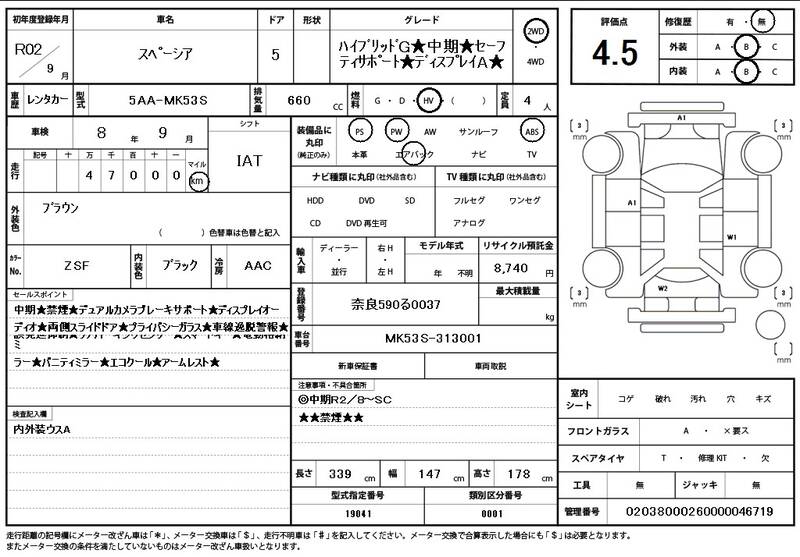 初年度登録年月 車名 ドア 形状 グレード
R02 / 9 月 スペーシア 5 ハイブリッドG★中期★セーフ
ティサポート★ディスプレイA★
2WD ・ 4WD
評価点 4.5
修復歴 有 ・ 無
外装 A ・ B ・ C
内装 A ・ B ・ C
車歴 レンタカー 型式 5AA-MK53S 排気量 660 CC 燃料 G ・ D ・ HV ・ ( ) 定員 4 人
車検 8 年 9 月 シフト IAT
走行 記号 十 万 千 百 十 一 マイル
4 7 0 0 0 km
装備品に丸印 (純正のみ) PS PW AW サンルーフ ABS
本革 エアバック ナビ TV
ナビ種類に丸印(社外品含む) TV種類に丸印(社外品含む)
HDD DVD SD フルセグ ワンセグ
CD DVD再生可 アナログ
外装色 ブラウン
( ) 色替車は色替と記入
カラーNo. ZSF 内装色 ブラック 冷房 AAC
輸入車 ディーラー ・ 並行 右H ・ 左H モデル年式 年 不明 リサイクル預託金 8,740 円
登録番号 奈良590る0037 最大積載量 kg
車台番号 MK53S-313001
新車保証書 車両取説
セールスポイント
中期★禁煙★デュアルカメラブレーキサポート★ディスプレイオー
ディオ★両側スライドドア★プライバシーガラス★車線逸脱警報★
ミ
ラー★バニティミラー★エコクール★アームレスト★
検査記入欄
内外装ウスA
注意事項・不具合箇所
◎中期R2/8〜SC
★★禁煙★★
長さ 339 cm 幅 147 cm 高さ 178 cm
型式指定番号 類別区分番号
19041 0001
A1
[ 3 ] mm [ 3 ] mm
A1
W1
W2
[ 3 ] mm [ 3 ] mm
[ ] mm
室内シート コゲ 破れ 汚れ 穴 キズ
フロントガラス A ・ ×要ス
スペアタイヤ T ・ 修理KIT ・ 欠
工具 無 ジャッキ 無
管理番号 02038000260000046719
走行距離の記号欄にメーター改ざん車は「*」、メーター交換車は「$」、走行不明車は「#」を記入してください。メーター交換で合算表示した場合にも「$」は必要となります。
またメーター交換の条件を満たしていないものはメーター改ざん車扱いとなります。